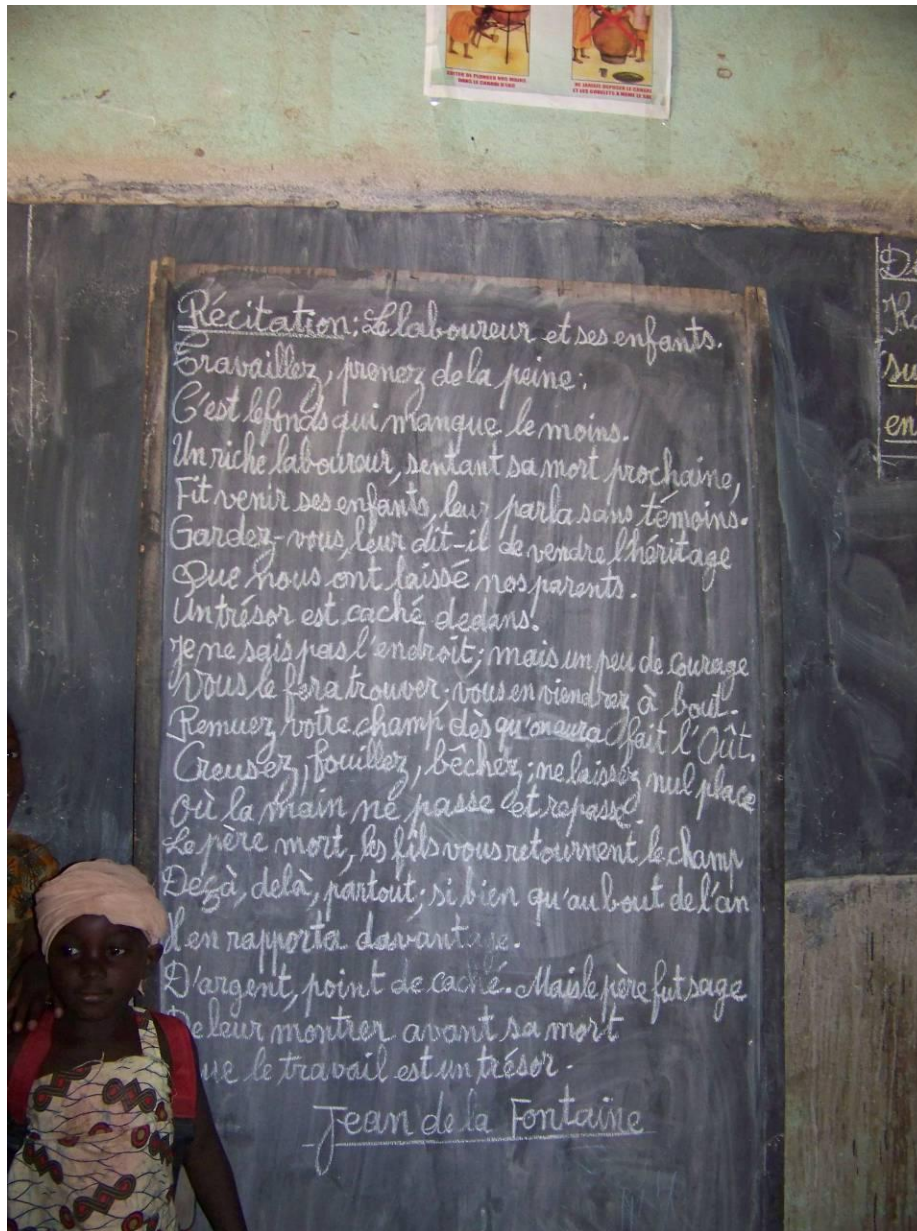 EVITER DE PLONGER NOS MAINS
DANS LE CANARI D'EAU
NE JAMAIS DEPOSER LE CANARI
ET LES GOBELETS A MEME LE SOL
Récitation: Le laboureur et ses enfants.
Travaillez, prenez de la peine:
C'est le fonds qui manque le moins.
Un riche laboureur, sentant sa mort prochaine,
Fit venir ses enfants, leur parla sans témoins.
Gardez-vous, leur dit-il de vendre l'héritage
Que nous ont laissé nos parents.
Un trésor est caché dedans.
Je ne sais pas l'endroit; mais un peu de courage
Vous le fera trouver; vous en viendrez à bout.
Remuez votre champ dès qu'on aura fait l'Oût.
Creusez, fouillez, bêchez; ne laissez nul place
où la main ne passe et repasse.
Le père mort, les fils vous retournent le champ
Deçà, delà, partout; si bien qu'au bout de l'an
Il en rapporta davantage.
D'argent, point de caché. Mais le père fut sage
De leur montrer avant sa mort
ue le travail est un trésor.
Jean de la Fontaine
su
en